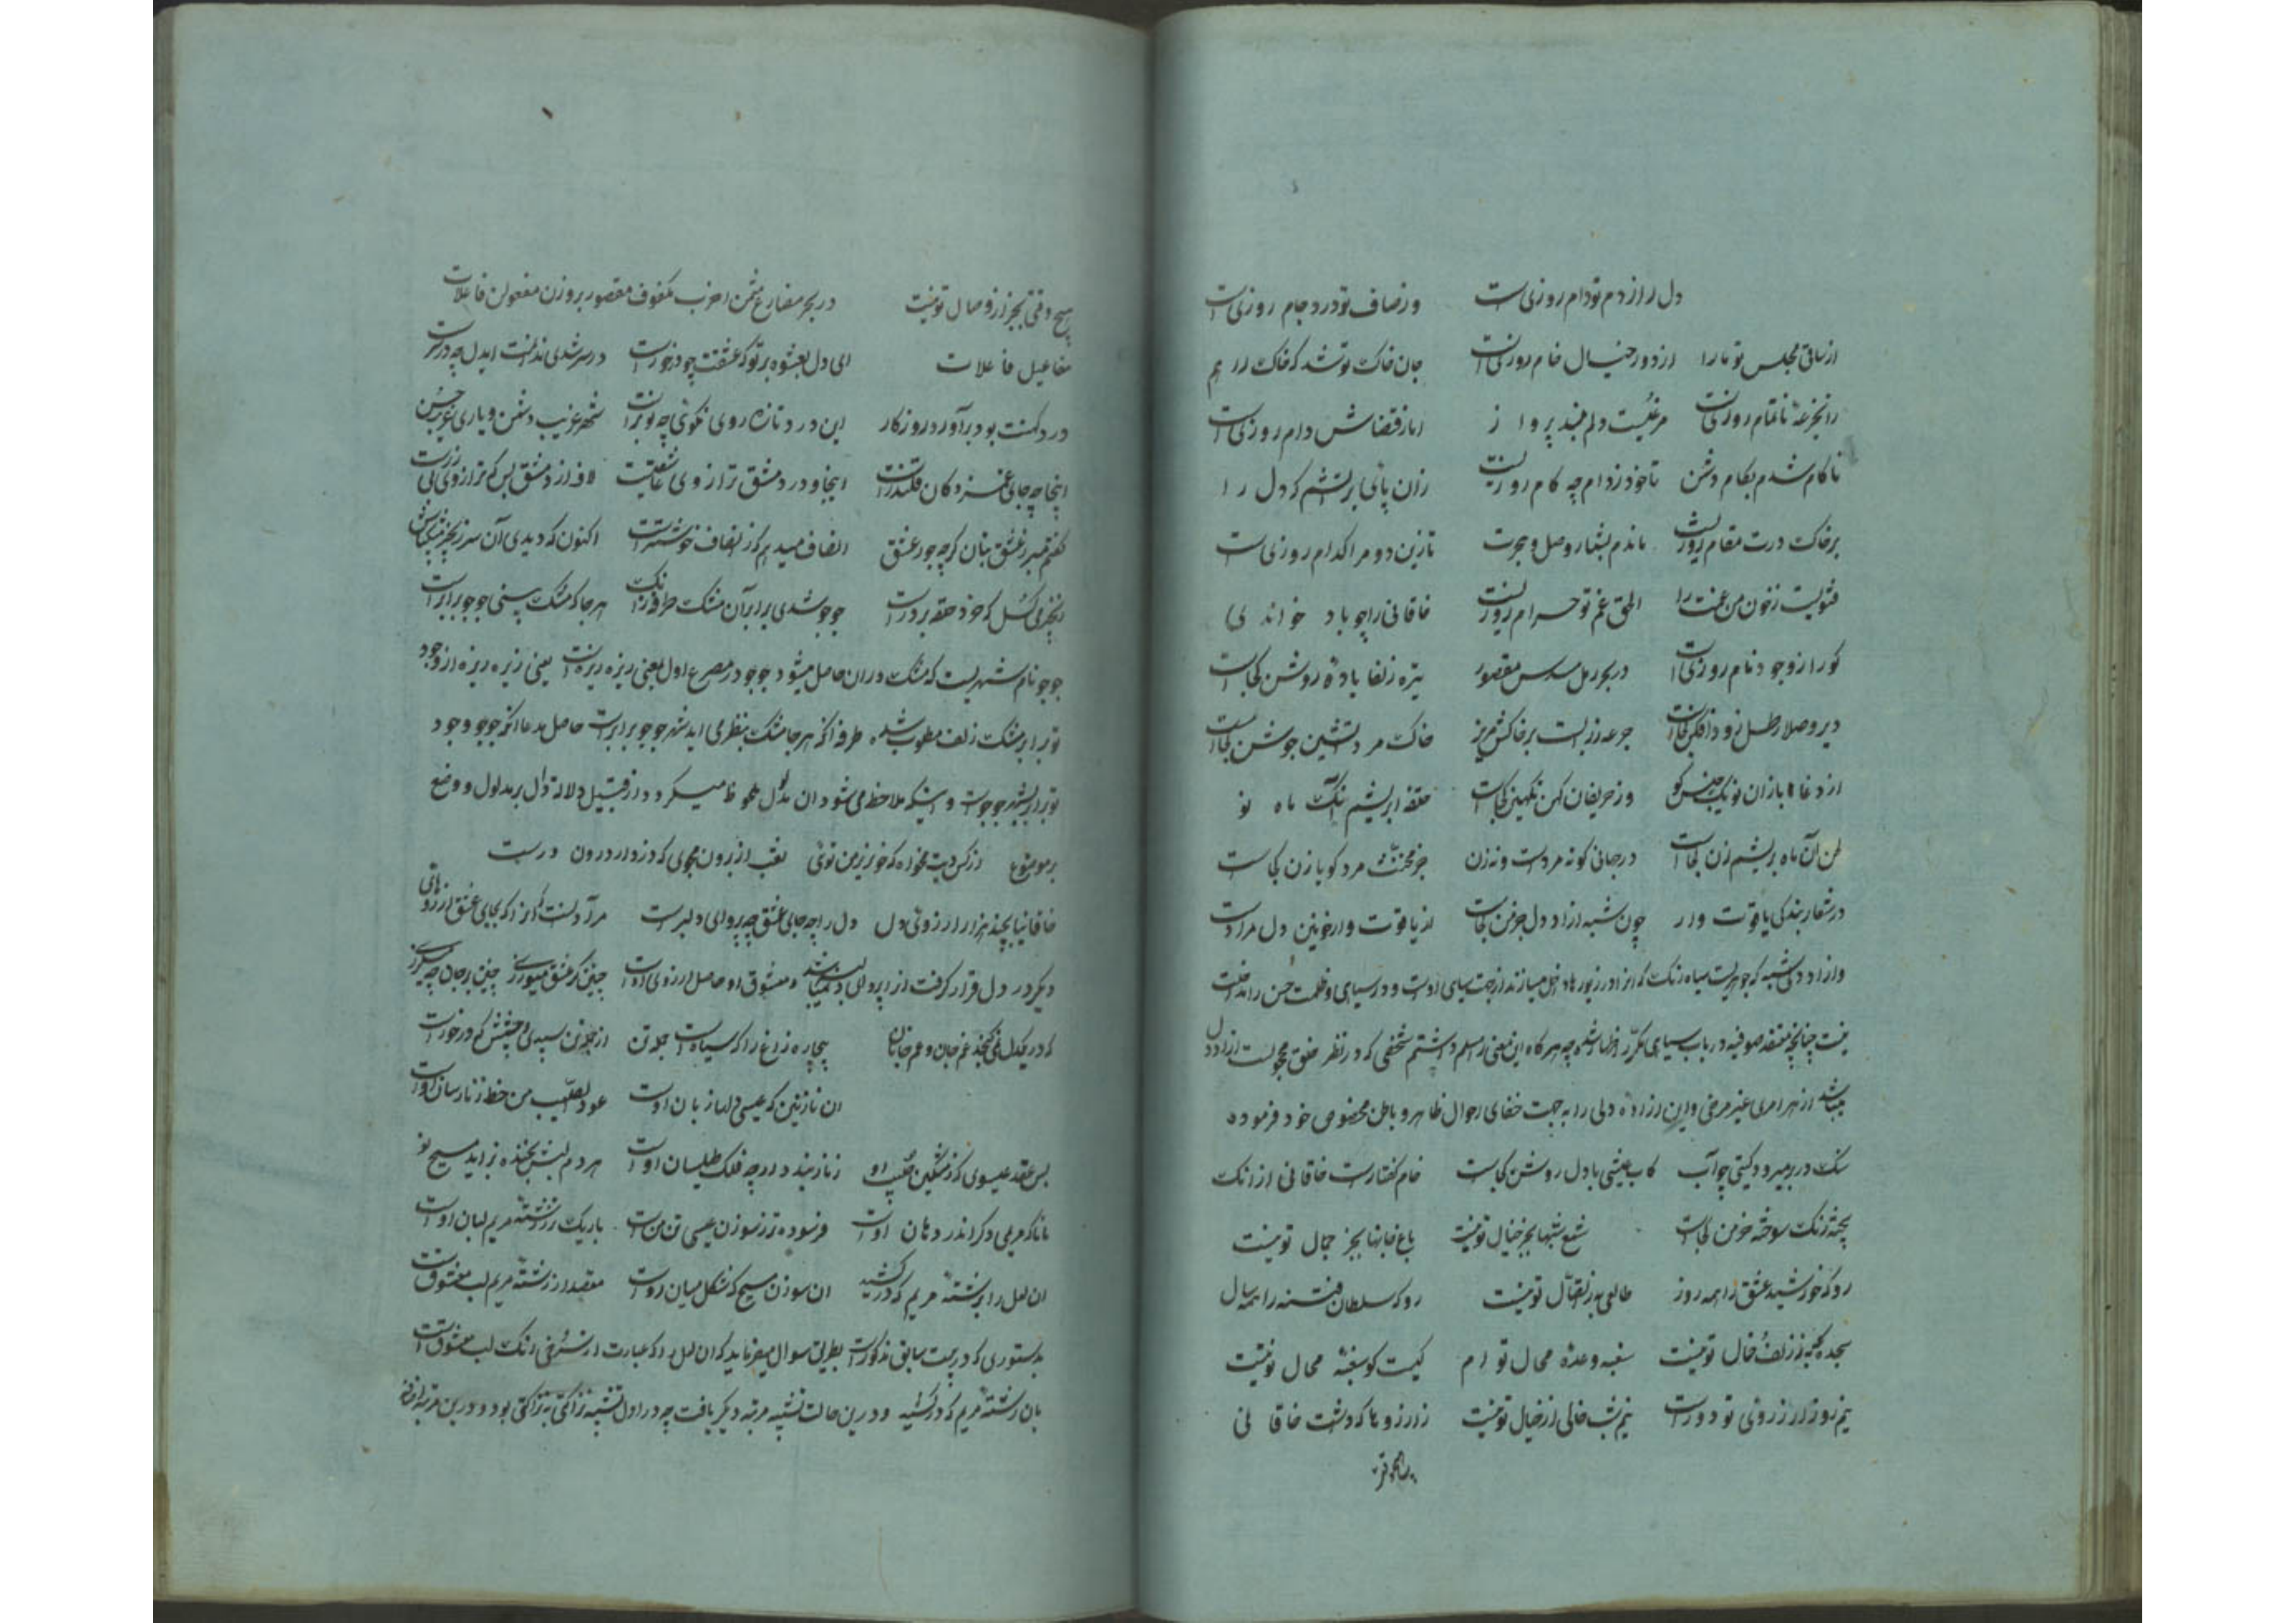 دل را از دم تو دام روزی است وز صاف تو درد جام روزی است
از ساقی مجلس تو ما را از دور خیال خام روزی است جان خاک تو شد که خاک را هم
از جرعهٔ ناتمام روزی است مرغیست دلم بلند پرواز اما ز قضاش دام روزی است
ناکام شدم بکام دشمن تا خود ز توام چه کام روزی است زان پای بر آتشم که دل را
بر خاک درت مقام روزی است ماندم بشمار وصل و هجرت تا زین دو مرا کدام روزی است
فتویست ز خون من غمت را الحق غم تو حرام روزی است خاقانی را چو یاد خوانی
کو را ز وجود نام روزی است در بحر رمل مسدس مقصور تیره زلفا باده روشن کجاست
دیر وصلا رطل زود افکن کجاست جرعه زیر لب بر خاک مریز خاک مرد آتشین جوشن کجاست
از دغا بازان نو یک جنس کو وز حریفان کهن یک تن کجاست حلقه ابریشم آنک ماه نو
لحن آن ماه بریشم زن کجاست در جهانی کو نه مردست و نه زن جز مخنث مرد کو یا زن کجاست
در شعار بندگی یاقوت وار چون شبه آزاد دل جز من کجاست از یاقوت وار خونین دل مراد است
و آزاد دلی شبه که جوهریست سیاه رنگ که آنرا در زیورها داخل میسازند از جهت سیاهی اوست و در سیاهی و ظلمت حسن را مدخلیت
نیست چنانچه معتقد صوفیه در باب سیاهی مکرر اظهار شده چه هرگاه این معنی را مسلم داشتیم شخصی که در نظر خلق مجهولست آزاد دل
میباشد از هر امری غیر مرضی و این آزاده دلی را به جهت خفای احوال ظاهر و باطن مخصوص خود فرموده
سنگ در بر میرود گیتی چو آب کاب عیشی با دل روشن کجاست خام گفتارست خاقانی از آنک
پخته زنگ سوخته خرمن کجاست شمع شبها بجز خیال تو نیست باغ جانها بجز جمال تو نیست
رو که خورشید عشق را همه روز طالعی به ز اتصال تو نیست رو که سلطان فتنه را همه سال
سجده گه جز ز زلف و خال تو نیست سغبه وعده محال توام کیست کو سغبه محال تو نیست
نیم روز از آرزوی تو دور است نیم شب خالی از خیال تو نیست ز آرزوها که داشت خاقانی
هیچ وقتی بجز آرزو وصال تو نیست در بحر مضارع مثمن اخرب مکفوف مقصور بر وزن مفعول فاعلات
مفاعیل فاعلات ای دل بعشوه بر تو که عشقت چه درخورست در سر شدی ندانمت ای دل چه در سرست
درد کهنت بود برآورد روزگار این درد تازه روی نگوئی چه نو برست شهر غریب دشمن و یاری غریب حسن
اینجا چه جای غمزدگان قلندرست اینجا و در دمشق ترازوی عاشقیست لاف از دمشق بس که ترازوی بی زرست
گفتم مبر ز عشق بتان گرچه جور عشق انصاف میدهم که ز انصاف خوشترست اکنون که دیدی آن سر زنجیر مشکپاش
زنجیر می گسل که خرد حلقه بر درست جو جو شدی برابر آن مشک و طرفه آنک هر جا که مشک بینی جو جو برابرست
جو جو نام شهریست که مشک در آن حاصل میشود جو جو در مصرع اول بمعنی ریزه ریزه است یعنی ریزه ریزه از وجود
تو برابر مشک زلف مطلوب شده طرفه آنکه هر جا مشک بنظر می آید شهر جو جو برابر است حاصل مدعا آنکه جو جو وجود
تو برابر شهر جو جوست و اینکه ملاحظه می شود آن مدلول ملحوظ میگردد از قبیل دلالة دال بر مدلول و وضع
بر موضوع از کس دیت مخواه که خونریز من توئی نقب از برون مجوی که دزد از درون درست
خاقانیا بچند هزار آرزوی دل دل را چه جای عشق چه پروای دلبرست مر آدلست آنرا که بجای عشق آرزوهای
دیگر در دل قرار گرفت او را پروای دلبر نمیباشد و معشوق او حاصل آرزوی اوست چنین گر عشق میورزی چنین بر جان چه میلرزی
که در یکدل نمی گنجد غم جان و غم جانان بیچاره زاغ را که سیاهست جمله تن از جمله تن سپیدی چشمش که درخورست
آن نازنین که عیسی دلها زبان اوست عود الصلیب من خط زنار سان اوست
بس عقد عیسوی که ز مشکین صلیب او زنار بند دارد چه فلک طیلسان اوست هر دم لبش بخنده بزاید مسیح نو
مانا که مریمی دگر اندر دهان اوست فرسوده تر ز سوزن عیسی تن من است باریکتر ز رشته مریم لبان اوست
آن لعل را برشته مریم که درکشید آن سوزن مسیح که شکل میان اوست مقصد از رشته مریم لب معشوقست
بدستوری که در بیت سابق مذکورست بطریق سوال میفرماید که آن لعل را که عبارت از سرخی رنگ لب معشوق است
بآن رشته مریم که درکشید و درین حالت تشبیه مرتبه دیگر یافت چه در اول تشبیه نزاکتی به نزاکتی بود و درین مرتبه